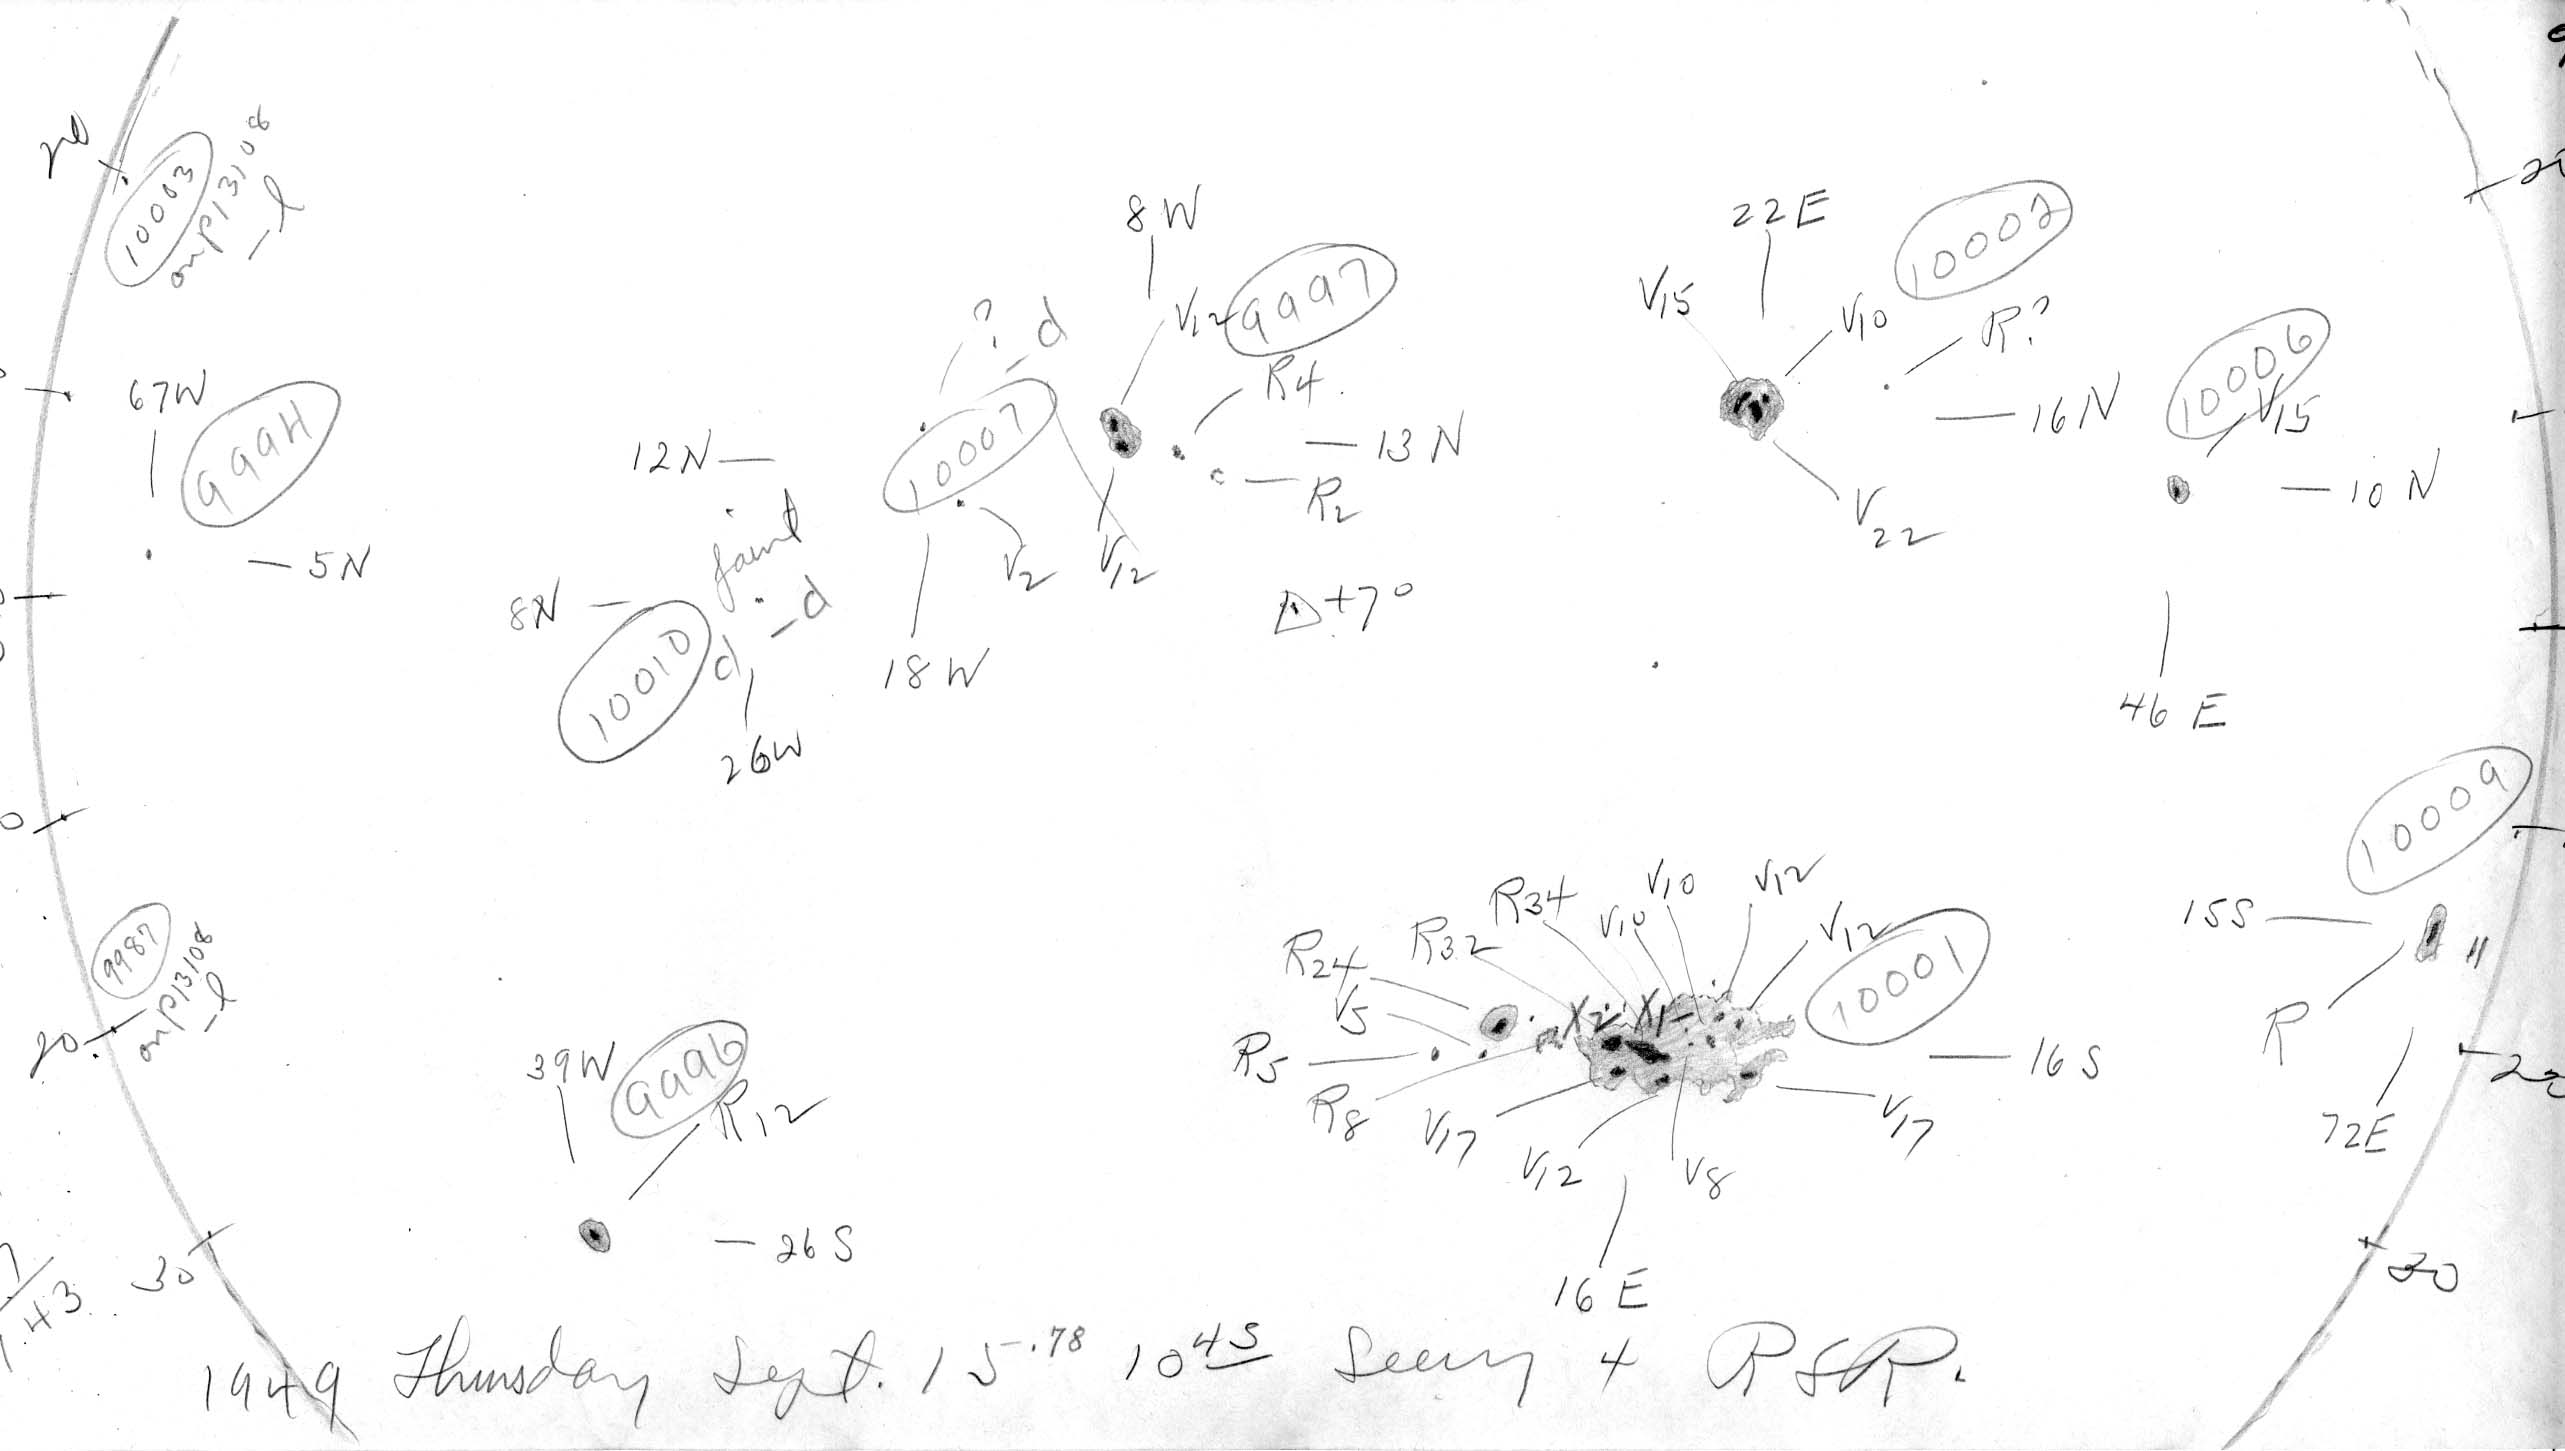 20
10003
on p 13108
-l
67W
999H
-5N
8W
V12
9997
?
-d
R4
12N-
10007
-13N
-R2
V2
V12
faint
8N-
-d
d
10010
18W
26W
△+7°
22E
10002
V15
V10
R?
-16N
V22
10006
V15
-10N
46E
0
9987
on p 13108
-l
20
39W
9996
R12
-26S
30
43
10009
15S-
R
72E
20
30
R34
V10
V10
V12
V12
10001
R24
R32
V5
X2
X1
R5
-16S
R8
V17
V12
V8
V17
16E
1949 Thursday Sept. 15.78 10 45 Seeing 4 RSR.